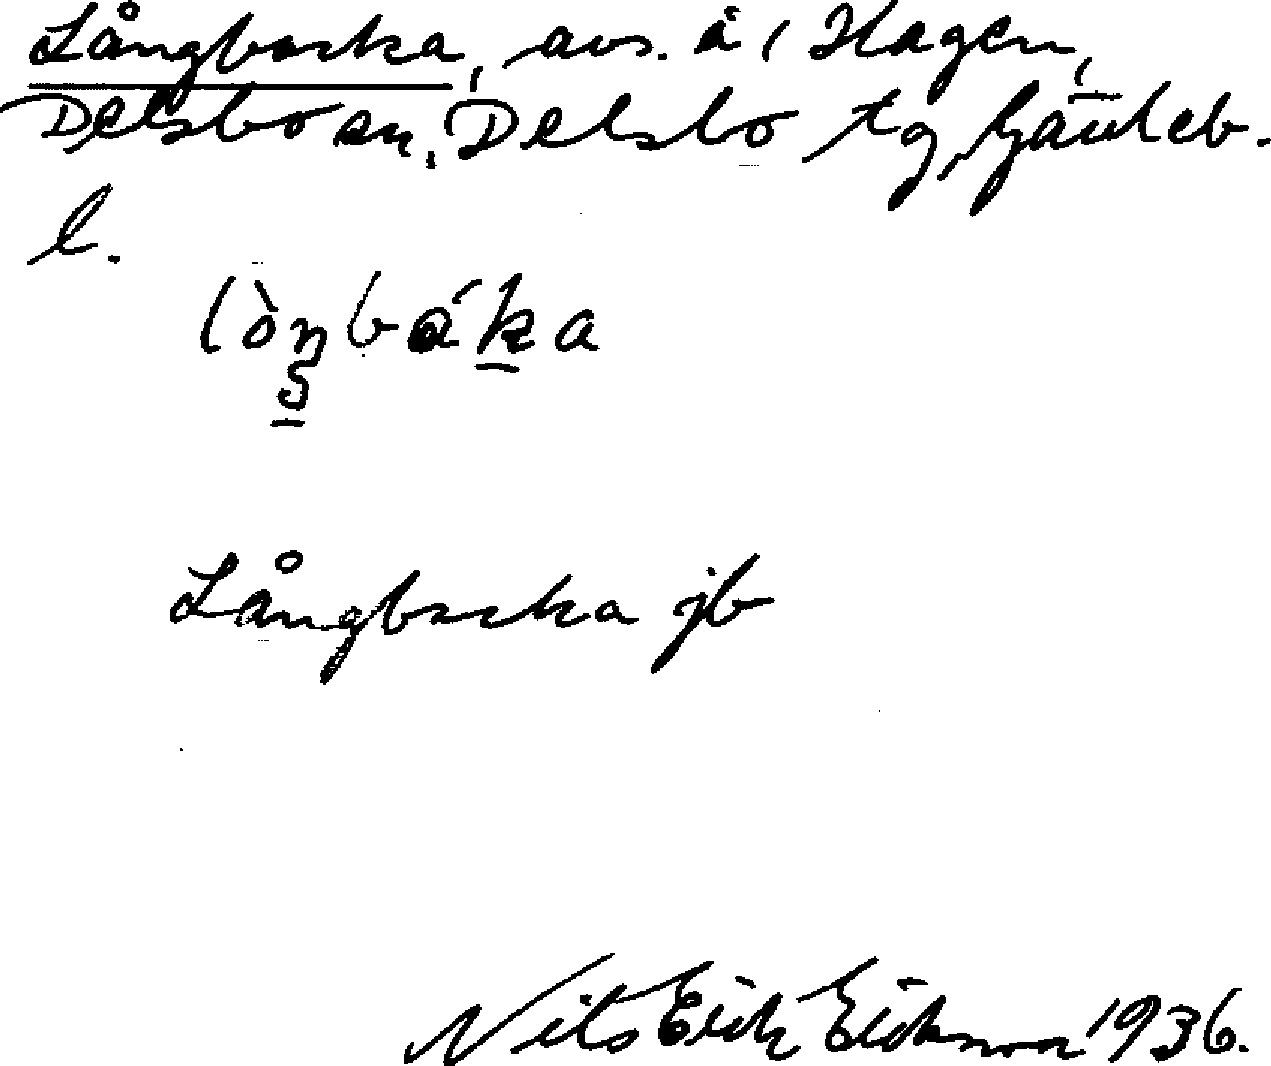 Långbacka, avs. å i Hagen,
Delsbo sn, Delsbo tg, Gävleb.
l.
lòŋbáka
Långbacka jb
Nils Erik Eriksson 1936.